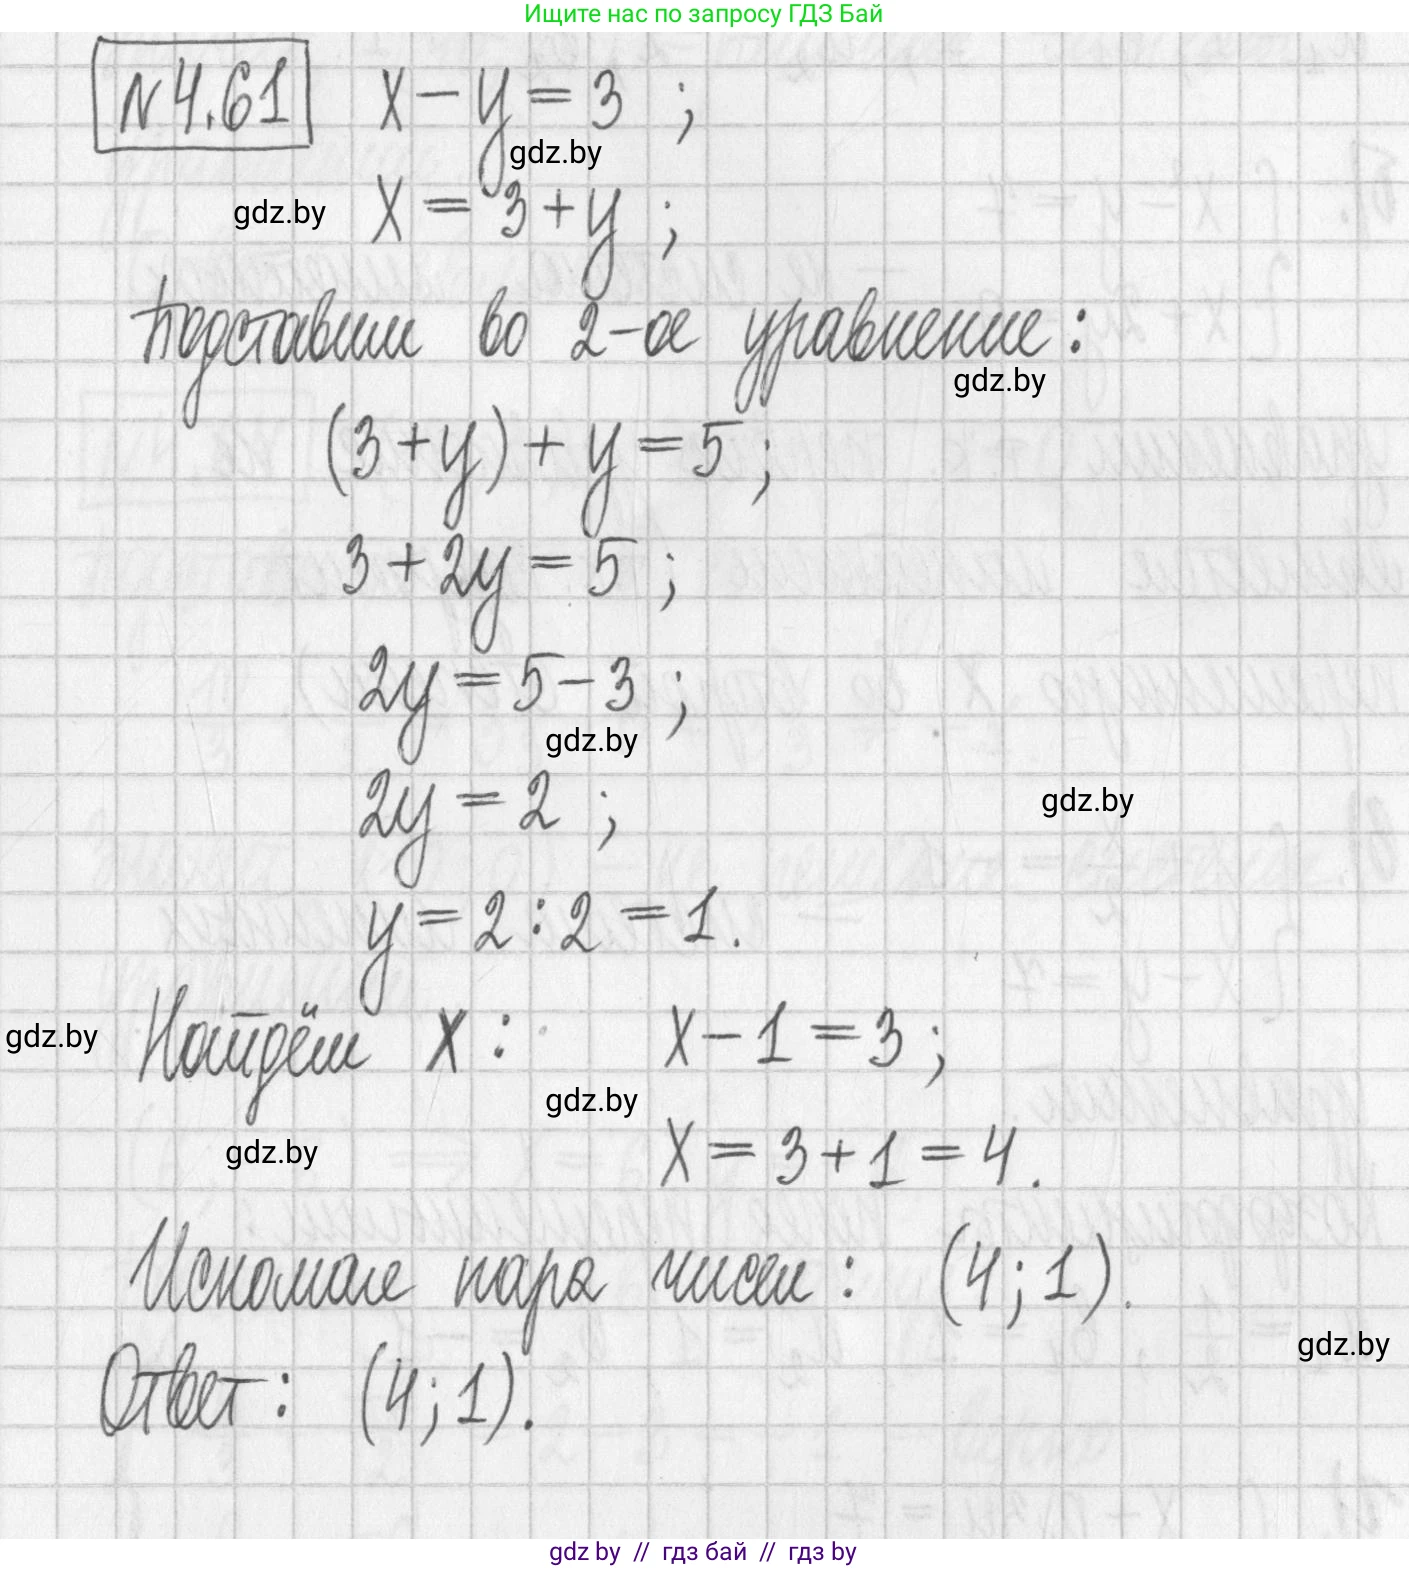 Ищите нас по запросу ГДЗ Бай
№4.61 x - y = 3 ;
gdz.by
gdz.by x = 3 + y ;
Подставим во 2-ое уравнение :
gdz.by
(3 + y) + y = 5 ;
3 + 2y = 5 ;
2y = 5 - 3 ;
gdz.by
2y = 2 ;
gdz.by
y = 2 : 2 = 1 .
gdz.by Найдём x : x - 1 = 3 ;
gdz.by
gdz.by x = 3 + 1 = 4 .
Искомая пара чисел : (4 ; 1) .
gdz.by
Ответ : (4 ; 1) .
gdz by // гдз бай // гдз by